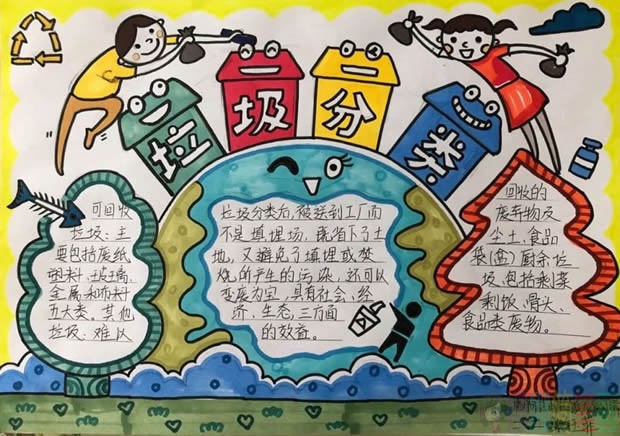 垃圾分类
可回收
垃圾:主
要包括废纸
塑料、玻璃、
金属和布料
五大类。其他
垃圾:难以
垃圾分类后,被送到工厂而
不是填埋场,既省下了土
地,又避免了填埋或焚
烧所产生的污染,还可以
变废为宝,具有社会、经
济、生态、三方面
的效益。
回收的
废弃物及
尘土、食品
袋(盒)厨余垃
圾,包括剩菜
剩饭、骨头、
食品类废物。